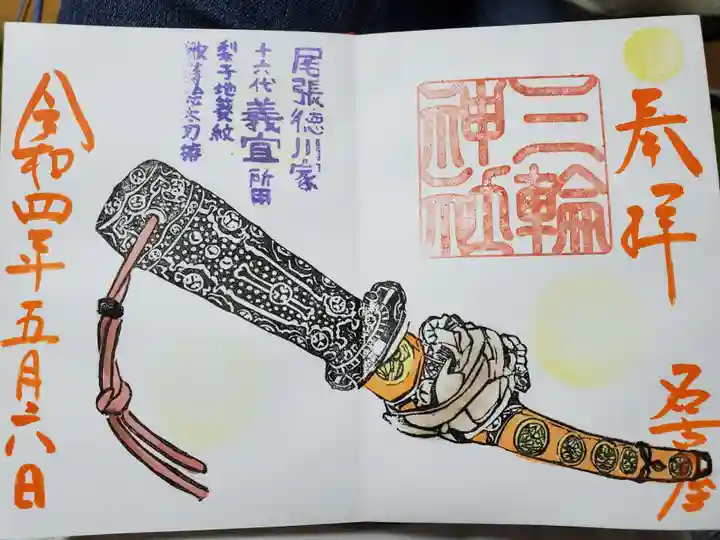 奉拝
名古屋
三輪
神社
尾張徳川家
十六代 義宜 所用
梨子地葵紋
令和四年五月六日